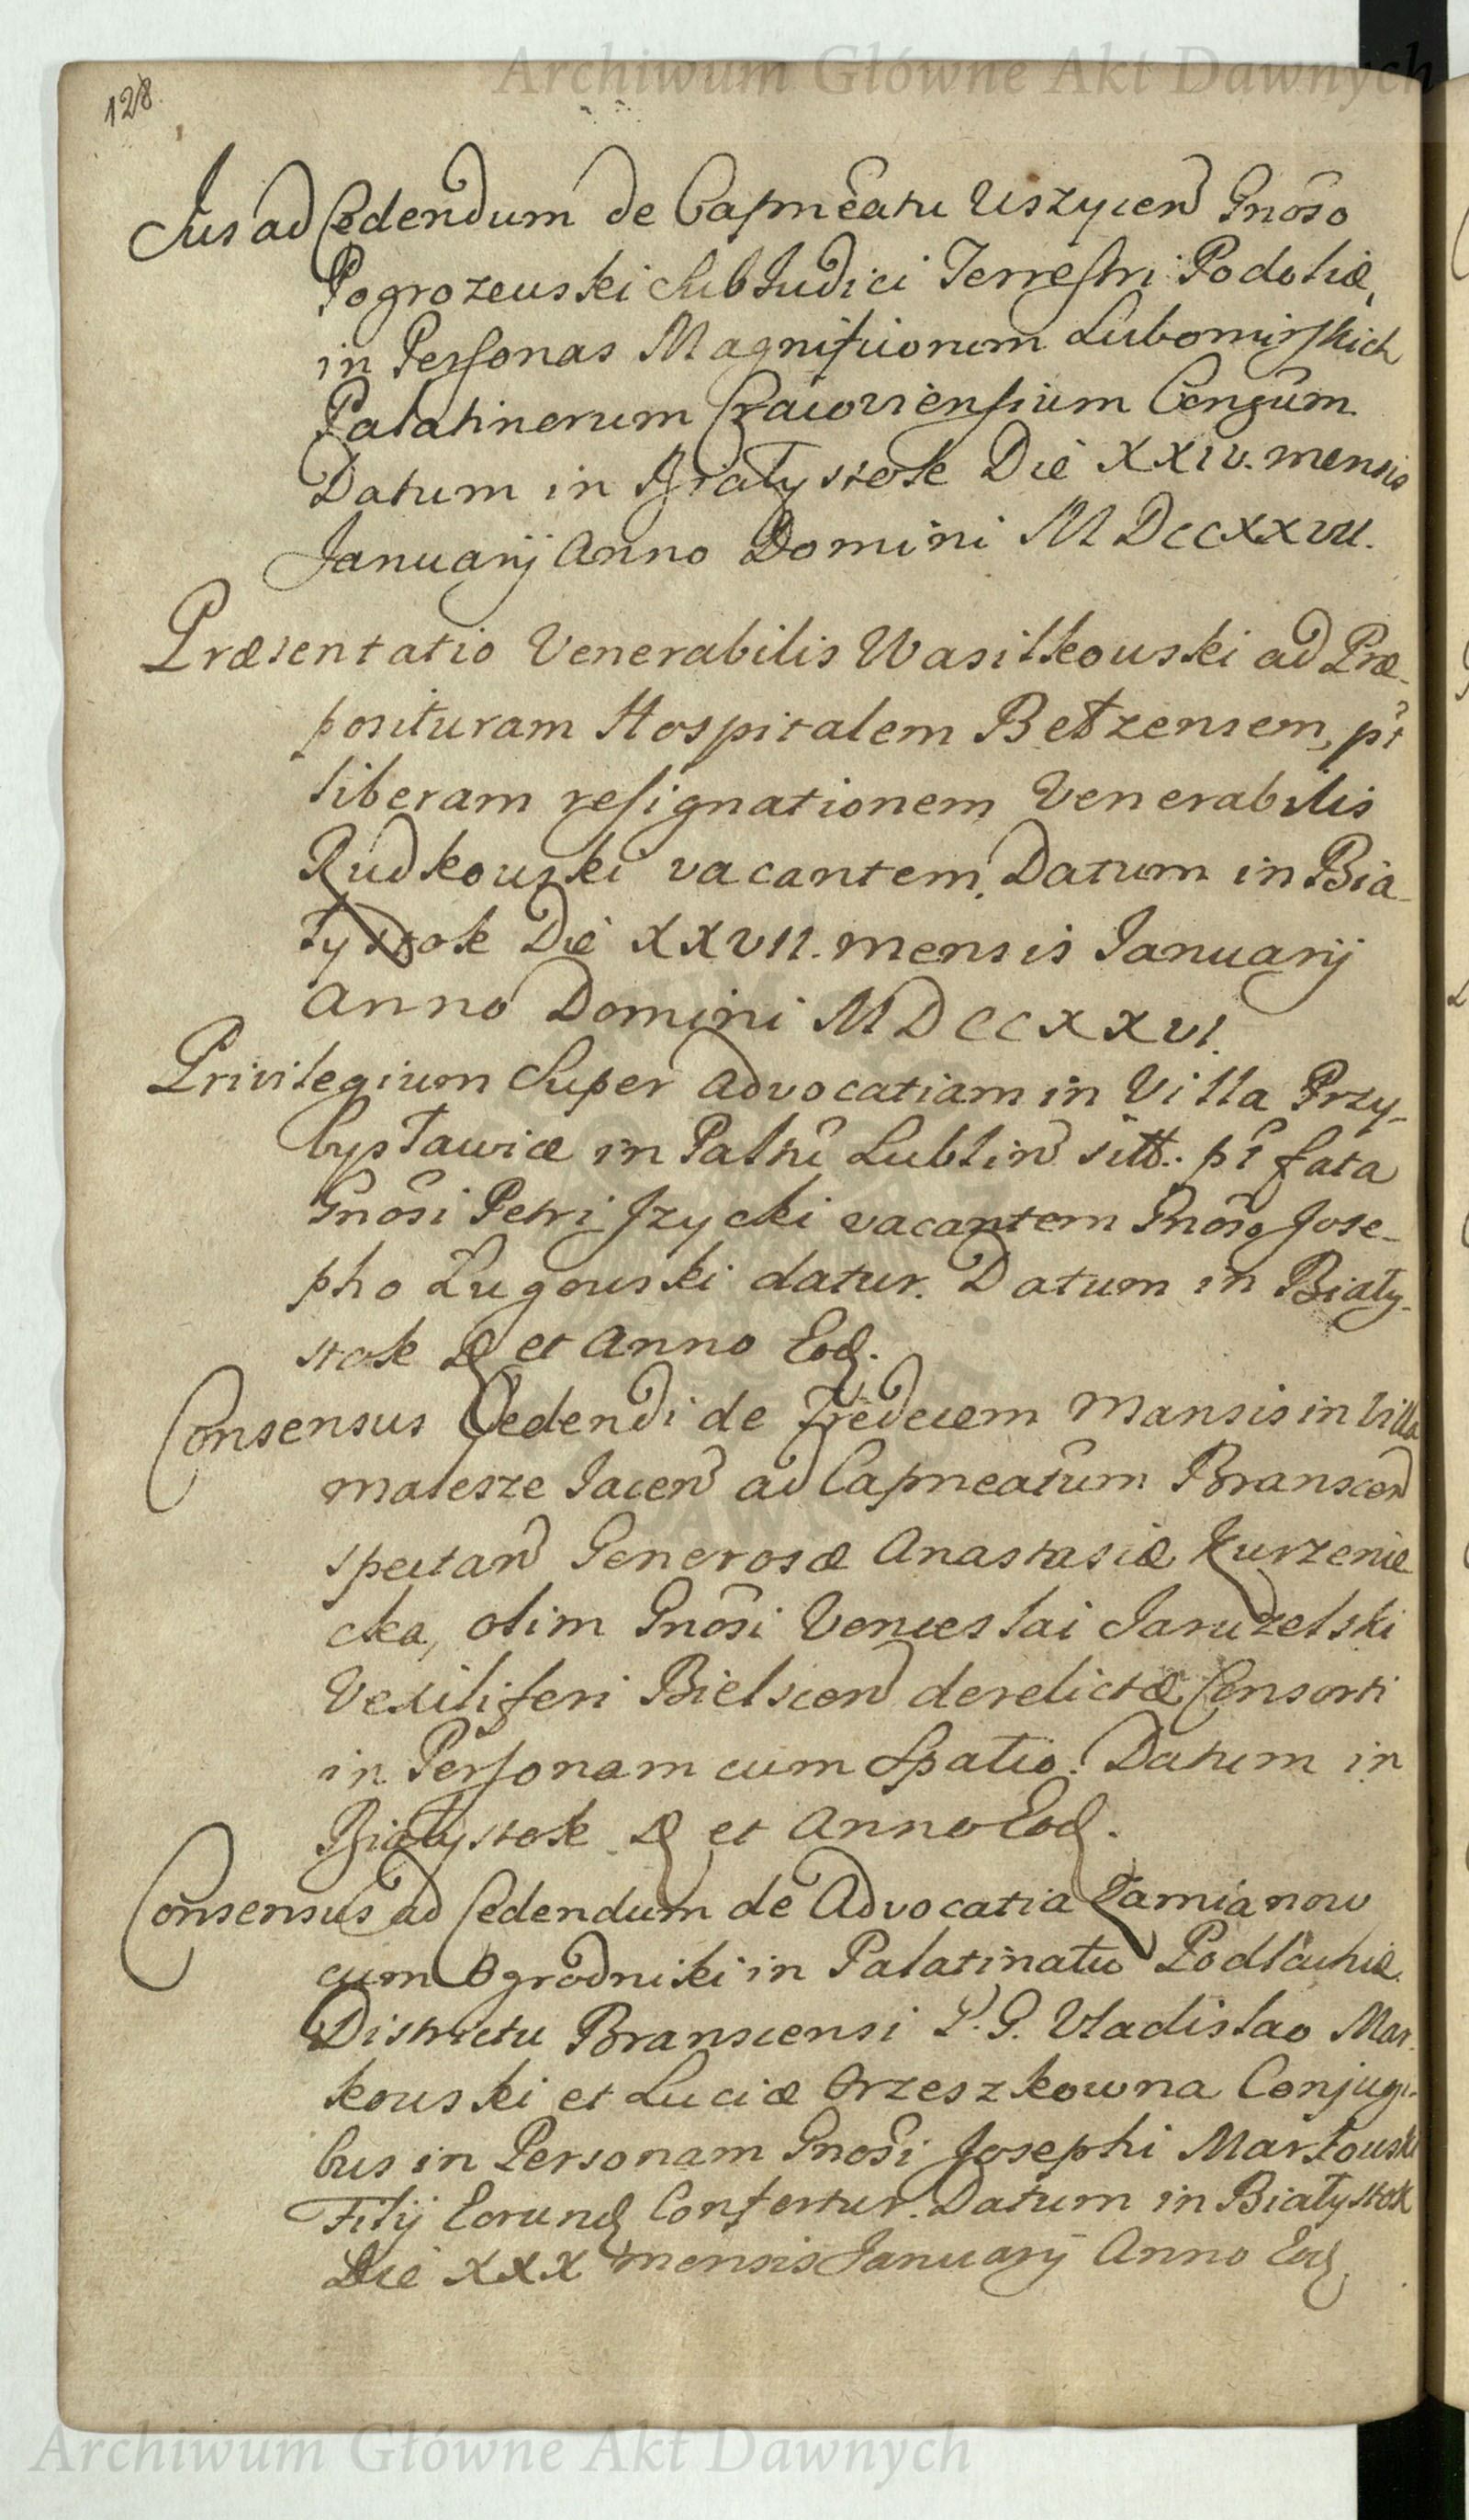 Archiwum Główne Akt Dawnych
128
Jus ad Cedendum de Capneatu Uszycen Gnoso
Pogrozewski SubJudici Terrestri Podoliæ,
in Personas Magnificorum Lubomirskich
Palatinorum Cracoviensium Conjum
Datum in Białystok Die XXIV. mensis
Januarij Anno Domini MDCCXXVII.
Præsentatio Venerabilis Wasilkowski ad Præ-
posituram Hospitalem Bełzensem, pt
liberam resignationem Venerabilis
Rudkowski vacantem. Datum in Bia-
łystok Die XXVII. mensis Januarij
Anno Domini MDCCXXVI.
Privilegium Super Advocatiam in Villa Przy-
bysławicæ in Paltu Lublin sitt. pt fata
Gnosi Petri Jzycki vacantem Gnoso Jose-
pho Ługowski datur. Datum in Biały-
stok D et Anno Eod.
Consensus Cedendi de Tredecem Mansis in Villa
malesze Jacen ad Capneatum Branscen
spectan Generosæ Anastasiæ Kurzenie
cka, olim Gnosi Venceslai Jaruzelski
Vexiliferi Bielscen derelictæ Consorti
in Personam cum Spatio. Datum in
Białystok D et Anno Eod.
Consensus ad Cedendum de Advocatia Łamianow
cum Ogrodniki in Palatinatu Podlachiæ.
Districtu Branscensi P. G. Vladislao Mar-
kowski et Luciæ Orzeszkowna Conjugi-
bus in Personam Gnosi Josephi Markowski
Filij Eorund Confertur. Datum in Białystok
Die XXX mensis Januarij Anno Eod
Archiwum Główne Akt Dawnych